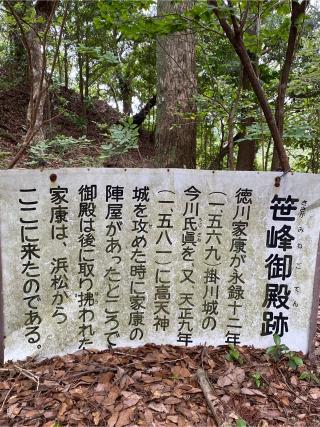 笹峰御殿跡
ささみねごてん
徳川家康が永録十二年
(一五六九)掛川城の
今川氏眞を、又、天正九年
(一、五八一)に高天神
城を攻めた時に家康の
陣屋があったところで
御殿は後に取り拂われた
家康は、浜松から
ここに来たのである。